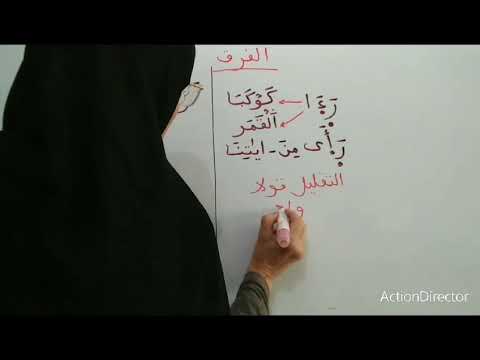 الفرق
رَءَا كَوْكَبًا
اَ۬لْقَمَرَ
رَأَىٰ مِنَ ـ ايَٰتِنَا
التقليل قولا
واحد
ActionDirector